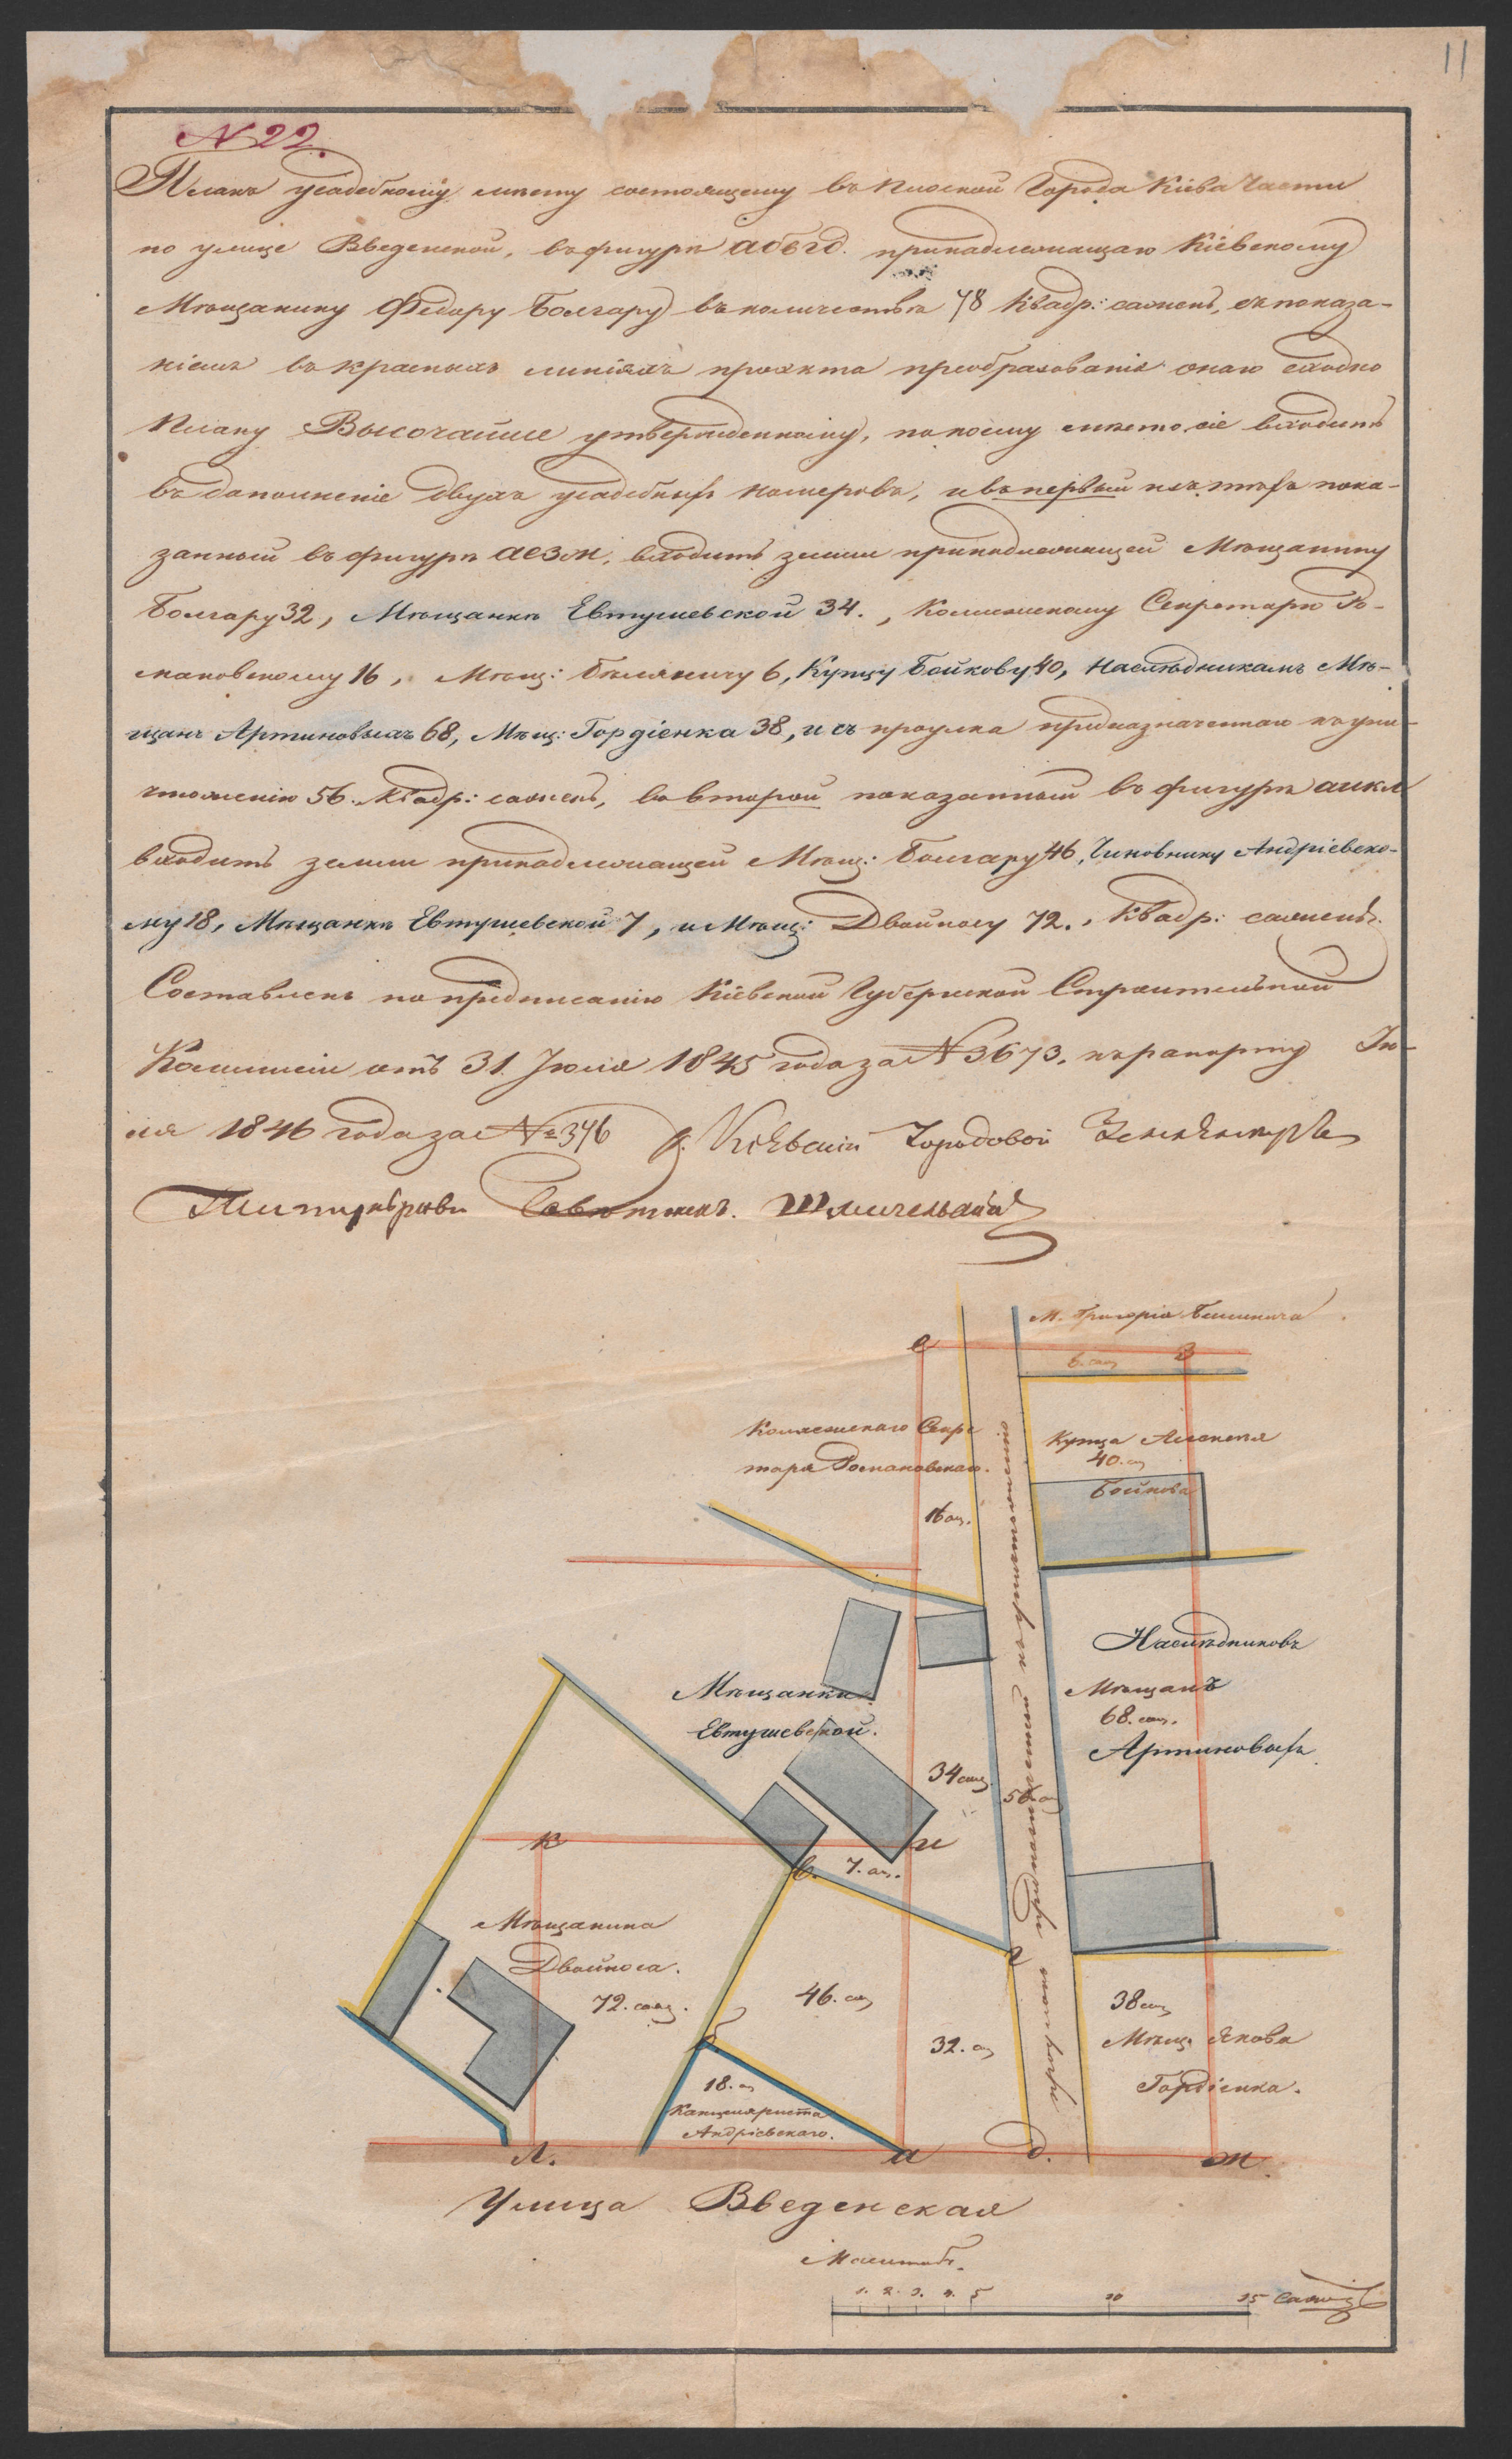 11
N 22.
Планъ усадебному мѣсту состоящему въ Плоской Города Кіева Части
по улице Введенской, въ фигурѣ абвгд. принадлежащаго Кіевскому
Мѣщанину Федору Болгару въ количествѣ 78 Квадр: саженъ, съ показа-
ніемъ въ красныхъ линіяхъ проэкта преобразованія онаго сходно
Плану Высочайше утвержденному, по коему мѣсто сіе входитъ
въ дополненіе двухъ усадебныхъ номеровъ, и въ первый изъ нихъ пока-
занный въ фигурѣ аезж, входитъ земли принадлежащей Мѣщанину
Болгару 32, Мѣщанкѣ Евтушевской 34., Коллежскому Секретарю Ро-
мановскому 16, Мѣщ: Бѣляничу 6, Купцу Бойкову 40, Наслѣдникамъ Мѣ-
щанъ Артиновыхъ 68, Мѣщ: Гордіенка 38, и съ проулка предназначеннаго къ уни-
чтоженію 56. Квадр: саженъ, во второй показанный въ фигурѣ аикл
входитъ земли принадлежащей Мѣщ: Болгару 46, Чиновнику Андріевско-
му 18, Мѣщанкѣ Евтушевской 7, и Мѣщ: Двойносу 72., Квадр: саженъ.
Составленъ по предписанію Кіевской Губернской Строительной
Коммисіи отъ 31. Іюля 1845 года за N 3673. къ рапорту Ію-
ля 1846 года за № 346 Кіевскій Городовой Землемѣръ
Титулярный Совѣтникъ
М. Григорія Бѣлянича
е
з
6. саж
Коллежскаго Секре
таря Романовскаго.
16 саж.
Купца Алексѣя
40. саж
Бойкова
проулокъ предназначенный къ уничтоженію
Наслѣдниковъ
Мѣщанъ
68. саж.
Артиновыхъ
Мѣщанки
Евтушевской.
34 саж.
56 саж
к
и
в.
7. саж.
г
Мѣщанина
Двойноса.
72. саж.
46. саж
32. саж
38 саж
Мѣщ. Якова
Гордіенка.
б
18. саж
Канцеляриста
Андріевскаго.
л.
а
д.
ж.
Улица Введенская
Масштабъ.
1. 2. 3. 4. 5 10 15 Саженъ